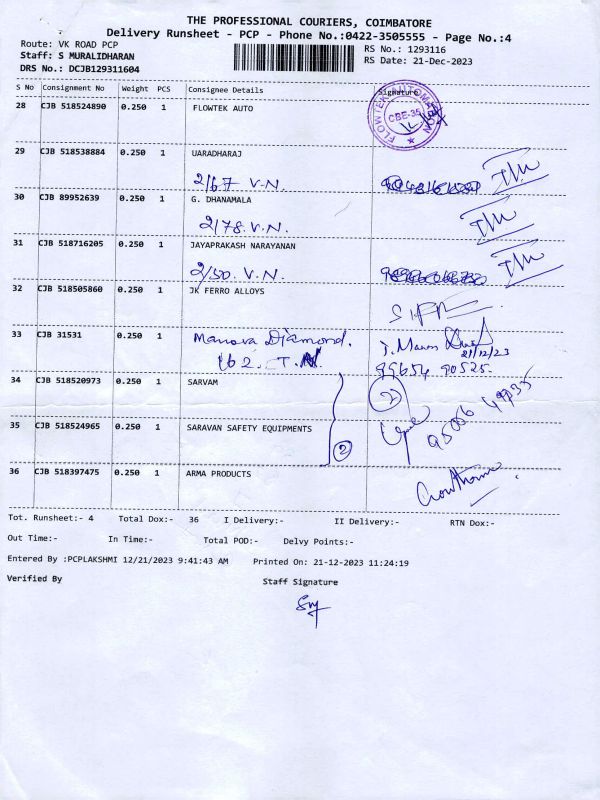 THE PROFESSIONAL COURIERS, COIMBATORE
Delivery Runsheet - PCP - Phone No.:0422-3505555 - Page No.:4
Route: VK ROAD PCP
RS No.: 1293116
Staff: S MURALIDHARAN
RS Date: 21-Dec-2023
DRS No.: DCJB129311604
S No Consignment No Weight PCS Consignee Details Signature
28 CJB 518524890 0.250 1 FLOWTEK AUTO
FLOWTEK AUTOMATION
CBE-35
29 CJB 518538884 0.250 1 UARADHARAJ
2/67 V.N.
30 CJB 89952639 0.250 1 G. DHANAMALA
2/78. V.N.
31 CJB 518716205 0.250 1 JAYAPRAKASH NARAYANAN
2/50. V.N.
32 CJB 518505860 0.250 1 JK FERRO ALLOYS
33 CJB 31531 0.250 1 Manova Diamond.
162. T.N
21/12/23
99654 90525.
34 CJB 518520973 0.250 1 SARVAM
2
35 CJB 518524965 0.250 1 SARAVAN SAFETY EQUIPMENTS
2
36 CJB 518397475 0.250 1 ARMA PRODUCTS
Gowtham
Tot. Runsheet:- 4 Total Dox:- 36 I Delivery:- II Delivery:- RTN Dox:-
Out Time:- In Time:- Total POD:- Delvy Points:-
Entered By :PCPLAKSHMI 12/21/2023 9:41:43 AM Printed On: 21-12-2023 11:24:19
Verified By Staff Signature